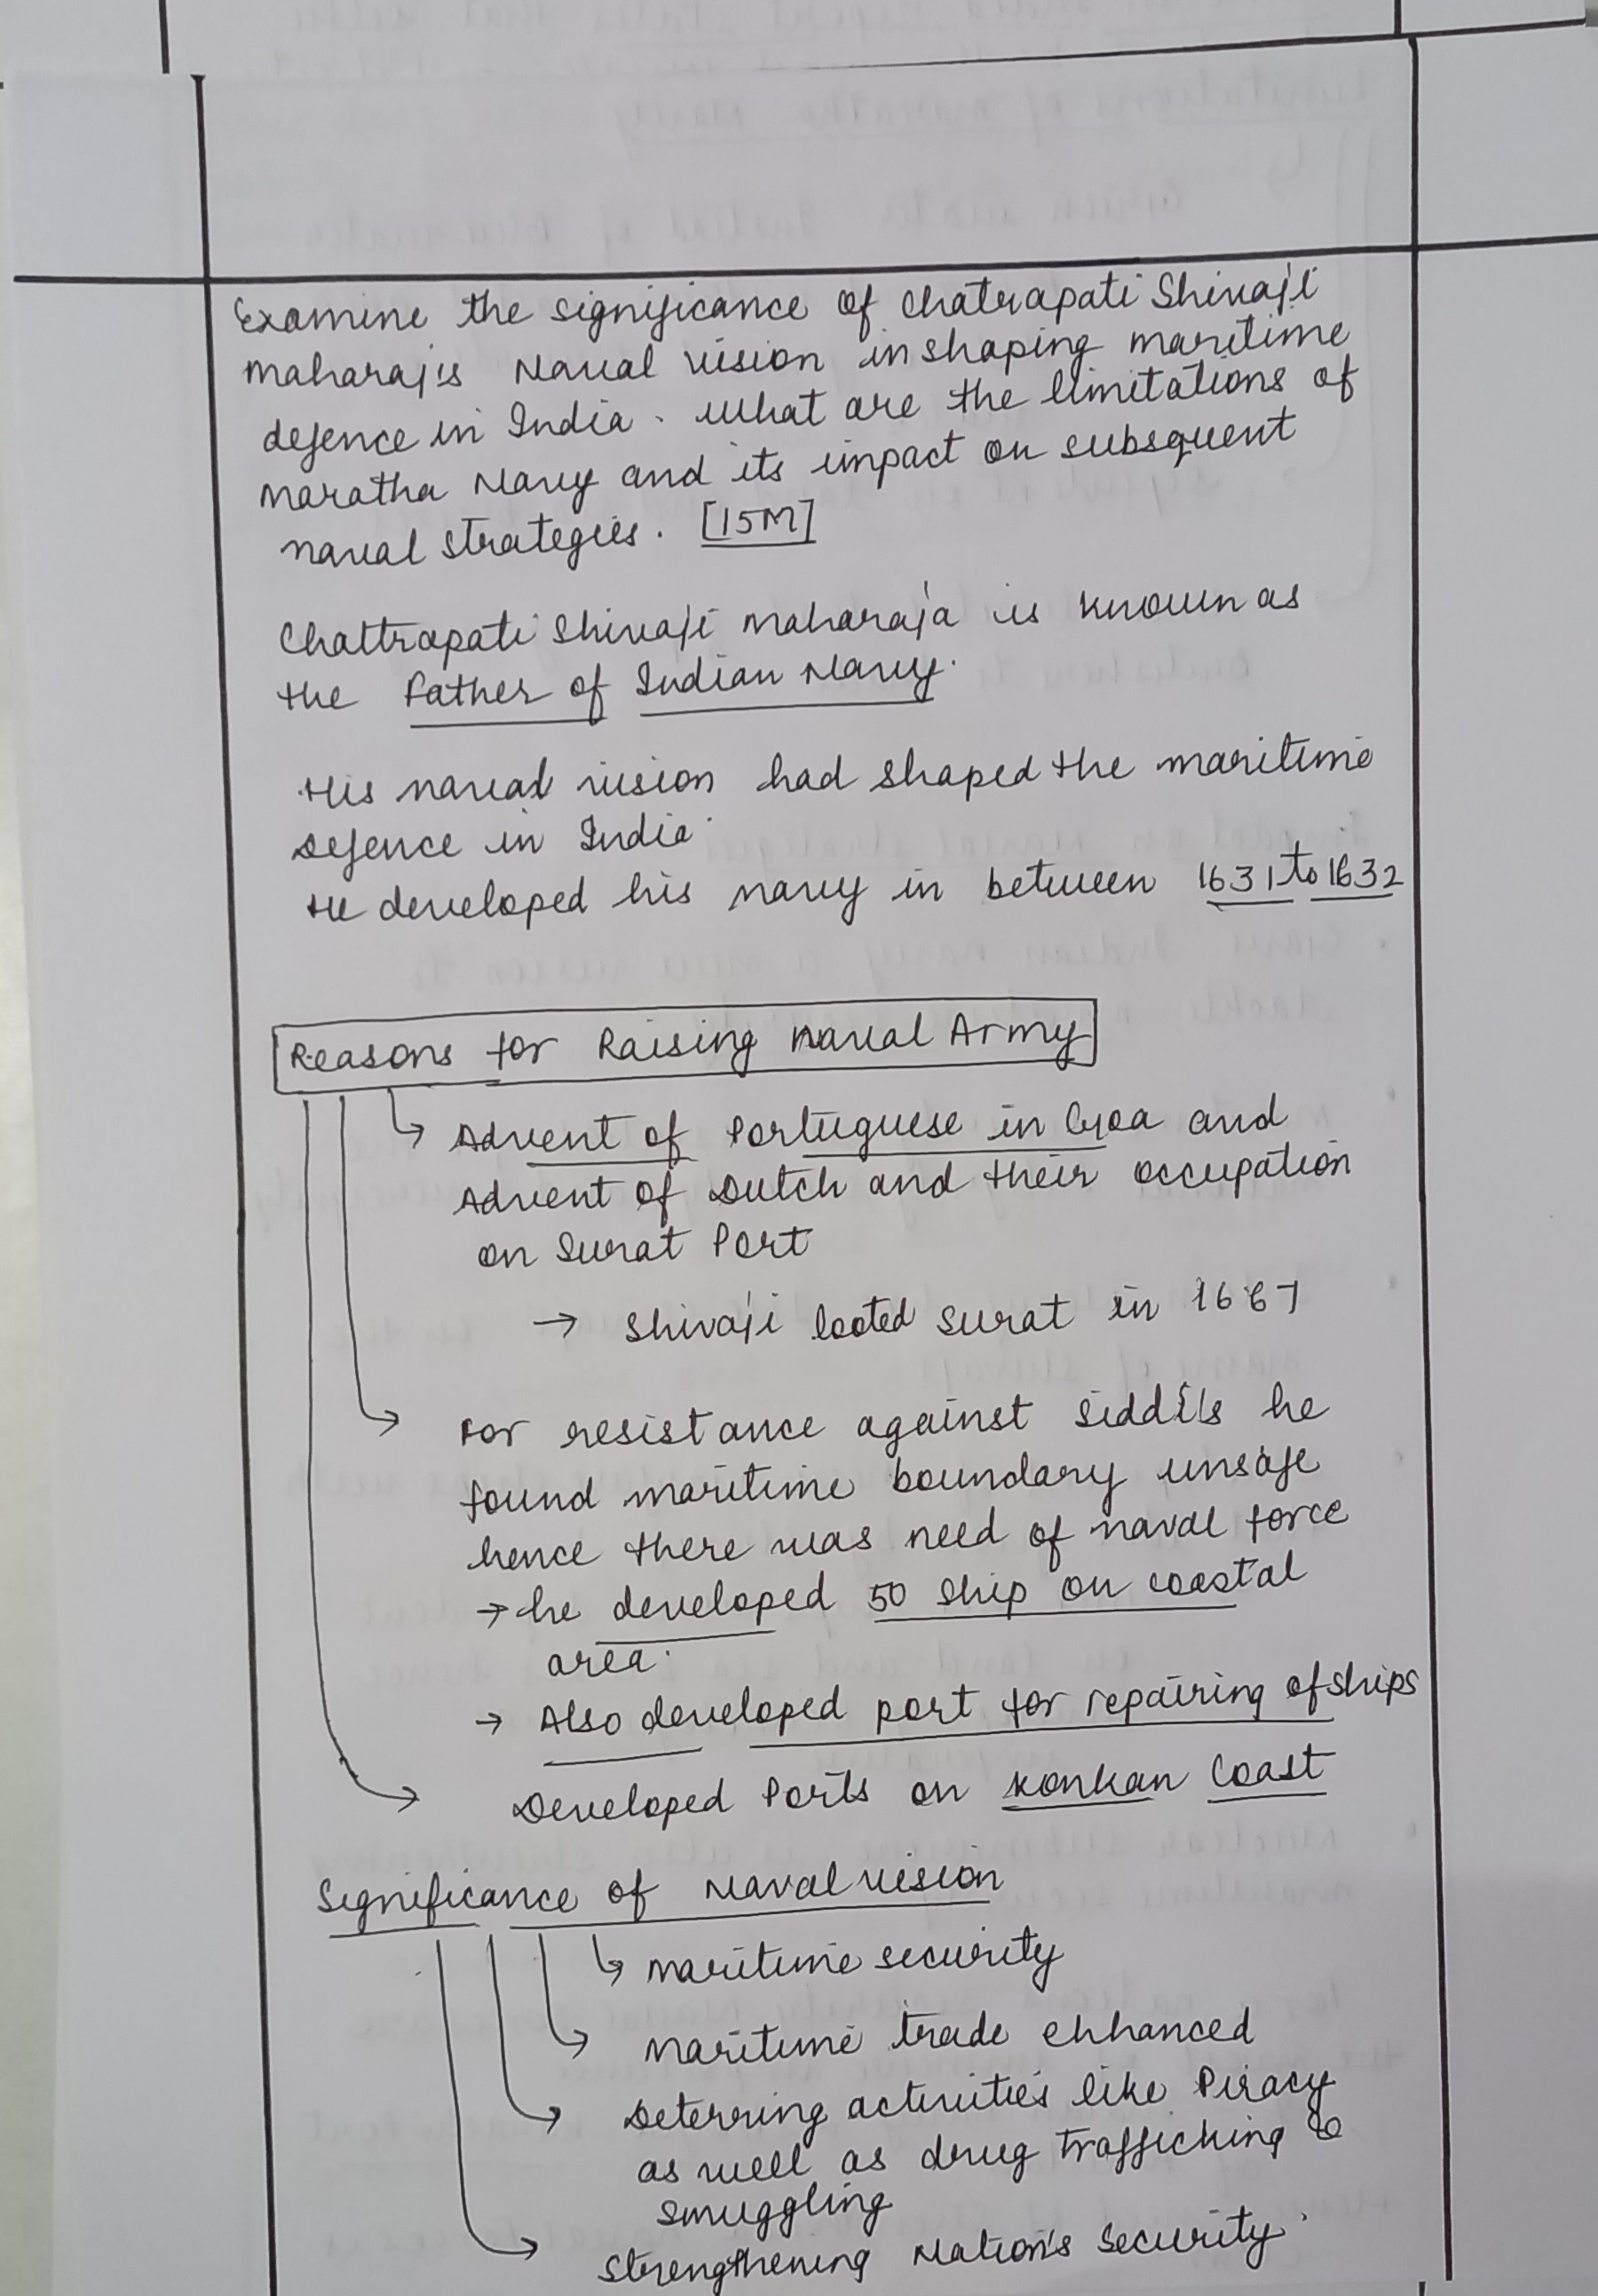 Examine the significance of Chatrapati Shivaji
maharaj's Naval vision in shaping maritime
defence in India. What are the limitations of
Maratha Navy and its impact on subsquent
naval strategies. [15M]
Chattrapati Shivaji Maharaja is known as
the Father of Indian Navy.
His naval vision had shaped the maritime
Defence in India.
He developed his navy in between 1631 to 1632
Reasons for Raising Naval Army
Advent of Portuguese in Goa and
Advent of Dutch and their occupation
on Surat Port
→ Shivaji looted Surat in 1667
For resistance against Siddi's he
found maritime boundary unsafe
hence there was need of naval force
→ he developed 50 ship on coastal
area.
→ Also developed port for repairing of ships
Developed Ports on Konkan Coast
Significance of Naval vision
Maritime security
Maritime trade enhanced
Deterring activities like Piracy
as well as drug trafficking &
smuggling
Strengthening Nation's Security.